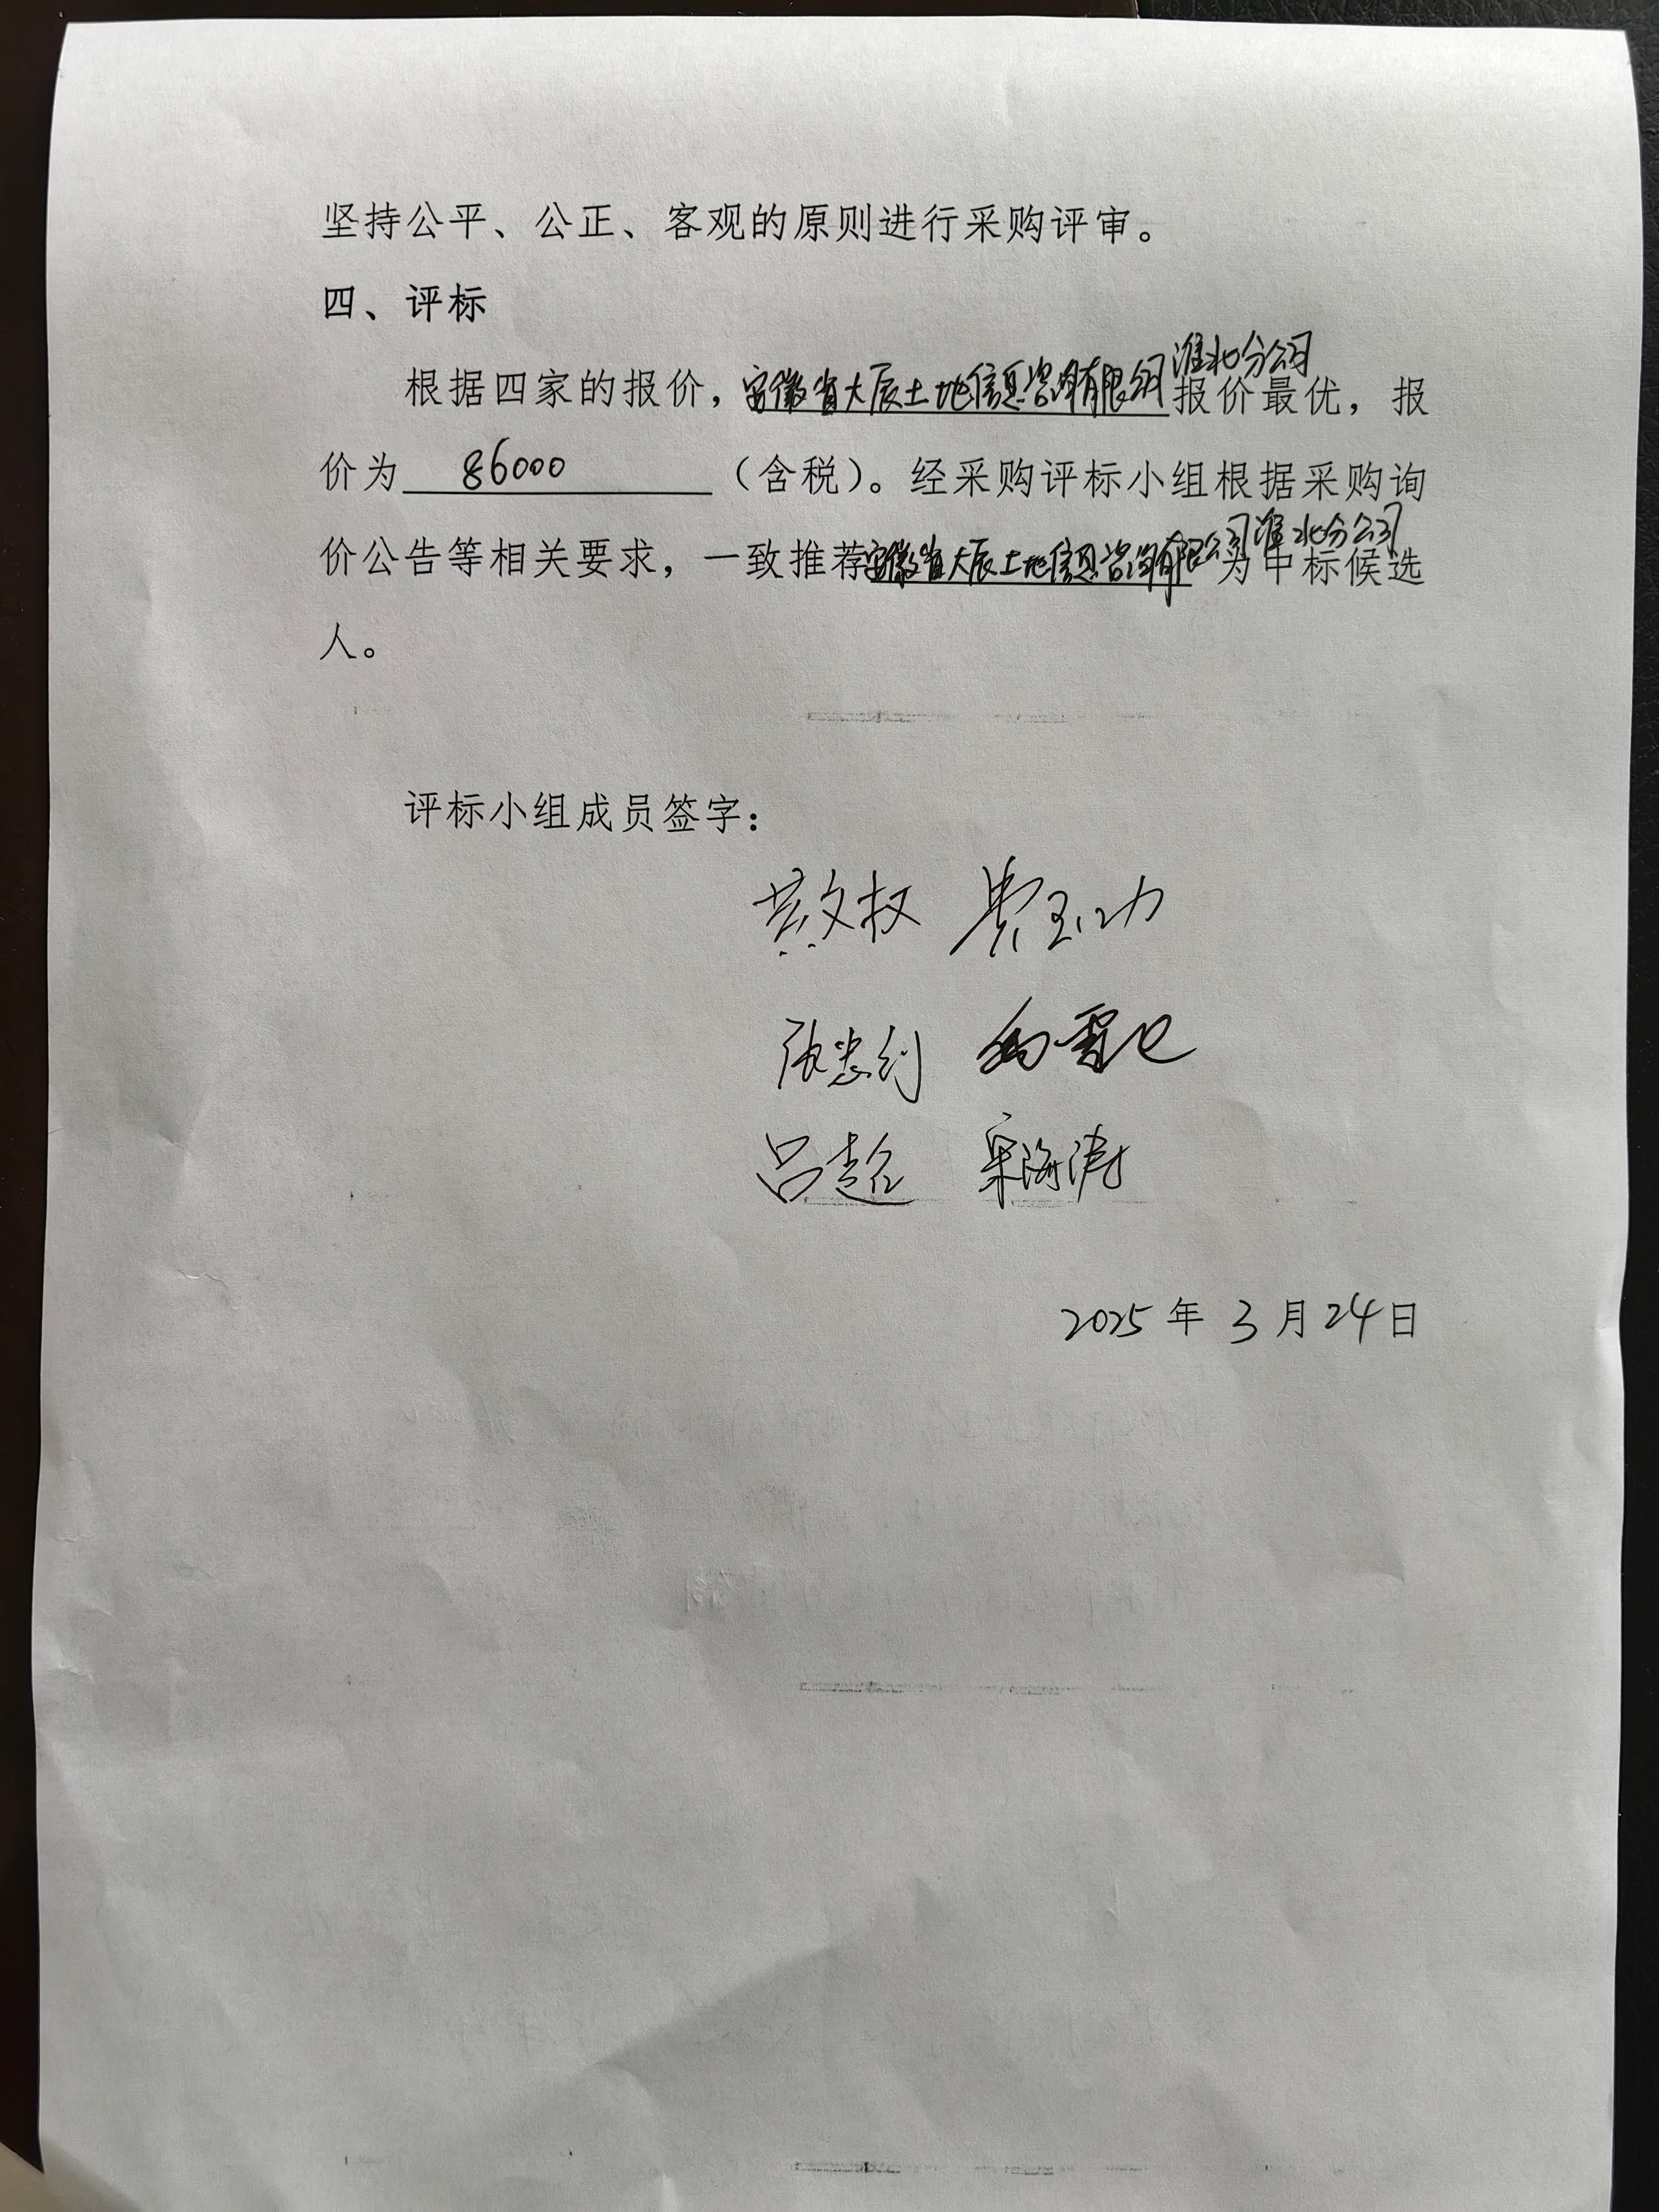 坚持公平、公正、客观的原则进行采购评审。
四、评标
根据四家的报价，安徽省大辰土地信息咨询有限公司淮北分公司报价最优，报
价为 86000 （含税）。经采购评标小组根据采购询
价公告等相关要求，一致推荐安徽省大辰土地信息咨询有限公司淮北分公司为中标候选
人。
评标小组成员签字：
黄文权 费玉功
张忠利
吕超 宋海涛
2025年3月24日